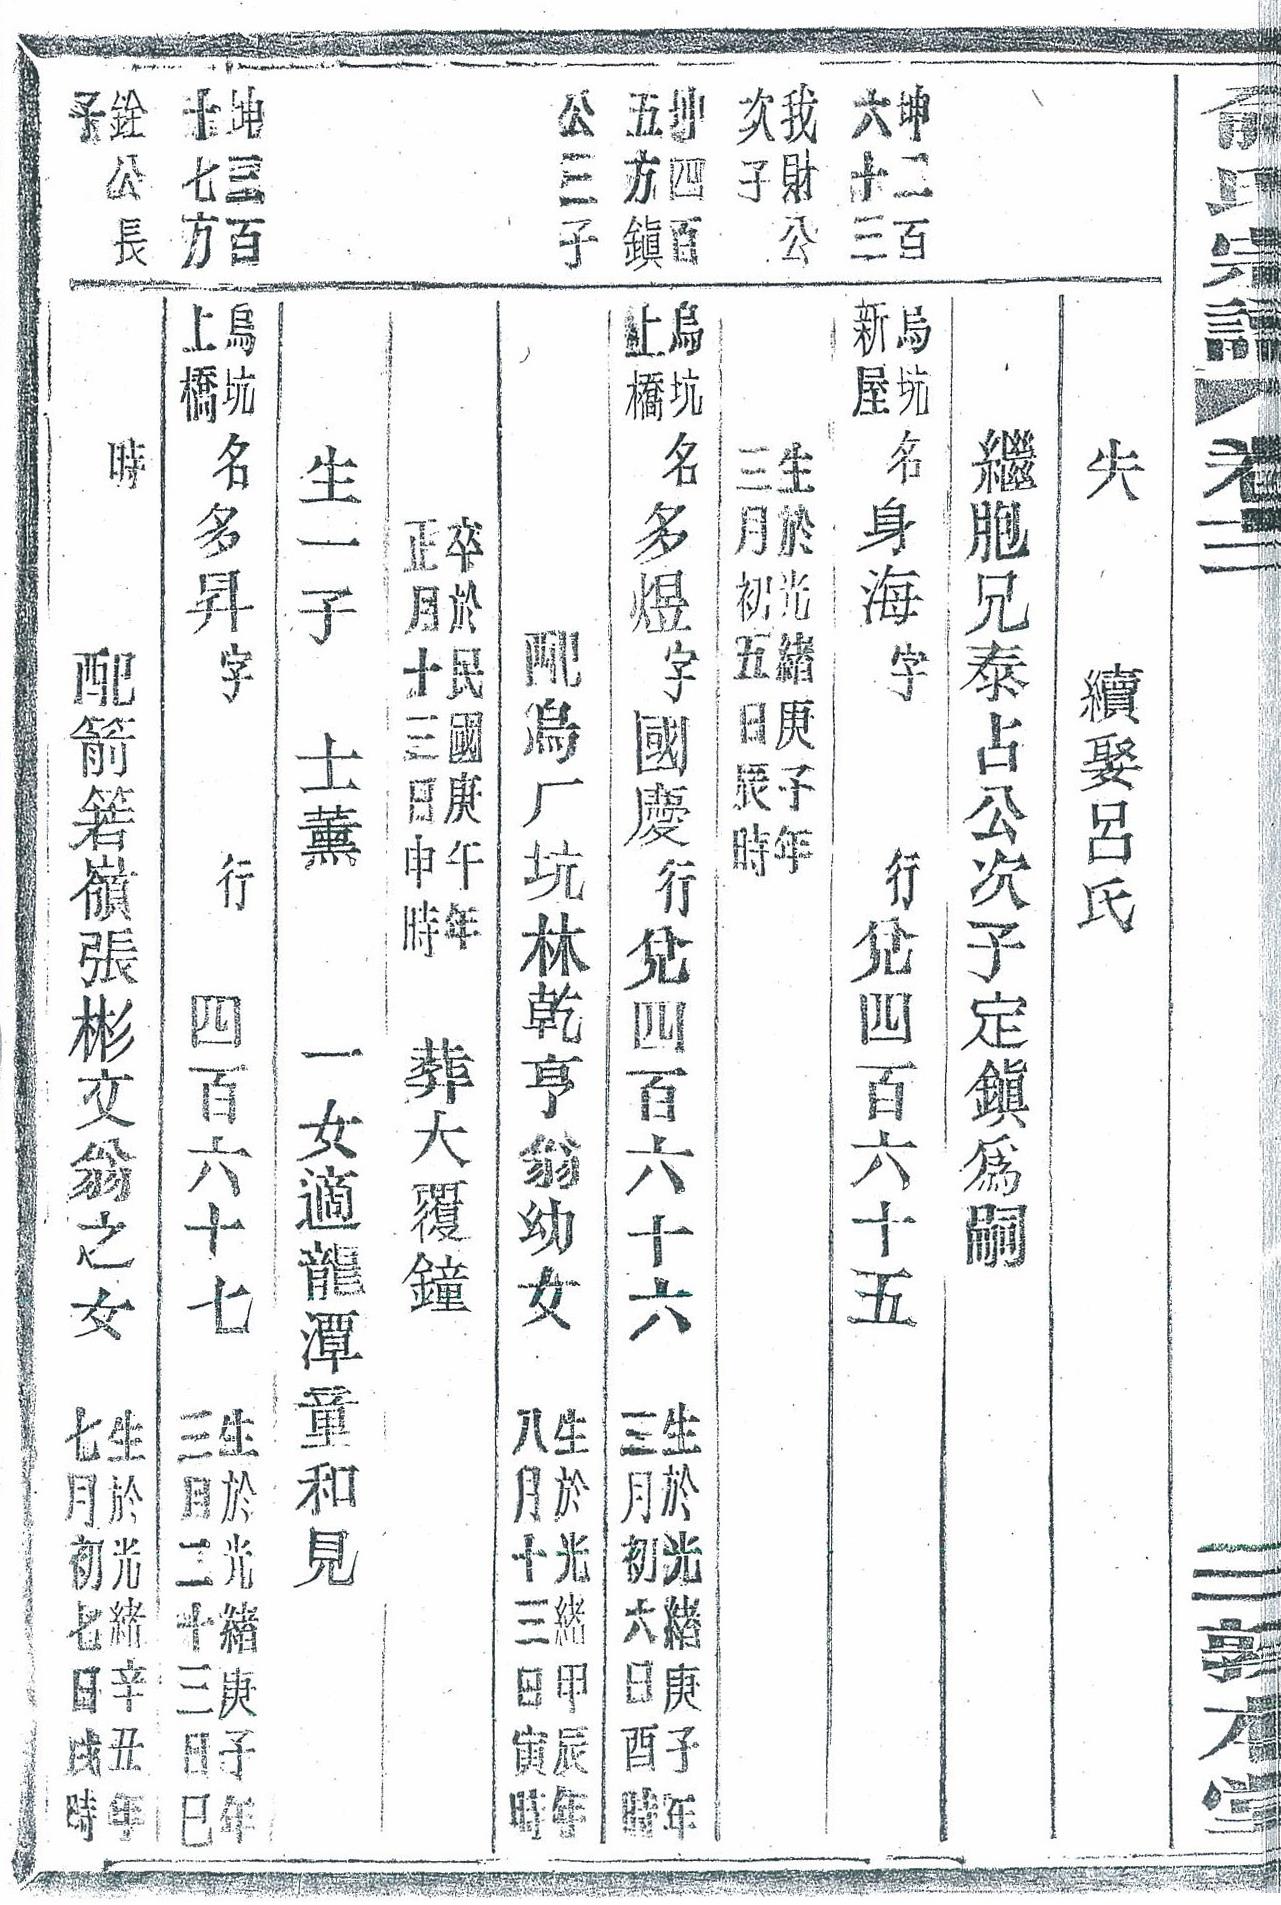 俞氏宗譜 卷三 三 敦本堂
失 續娶呂氏
繼胞兄泰占公次子定鎮為嗣
坤二百
六十三
烏坑
新屋
名身海字 行兌四百六十五
我財公
次子
生於光緒庚子年
三月初五日辰時
坤四百
五方鎮
烏坑
上橋
名多煜字國慶行兌四百六十六
生於光緒庚子年
三月初六日酉時
公三子
配烏厂坑林乾亨翁幼女
生於光緒甲辰年
八月十三日寅時
卒於民國庚午年
正月十三日申時
葬大覆鐘
生一子 士薰 一女適龍潭童和見
坤三百
十七方
烏坑
上橋
名多昇字 行 四百六十七
生於光緒庚子年
三月二十三日巳
銓公長
子
時
配箭箬嶺張彬文翁之女
生於光緒辛丑年
七月初七日戌時